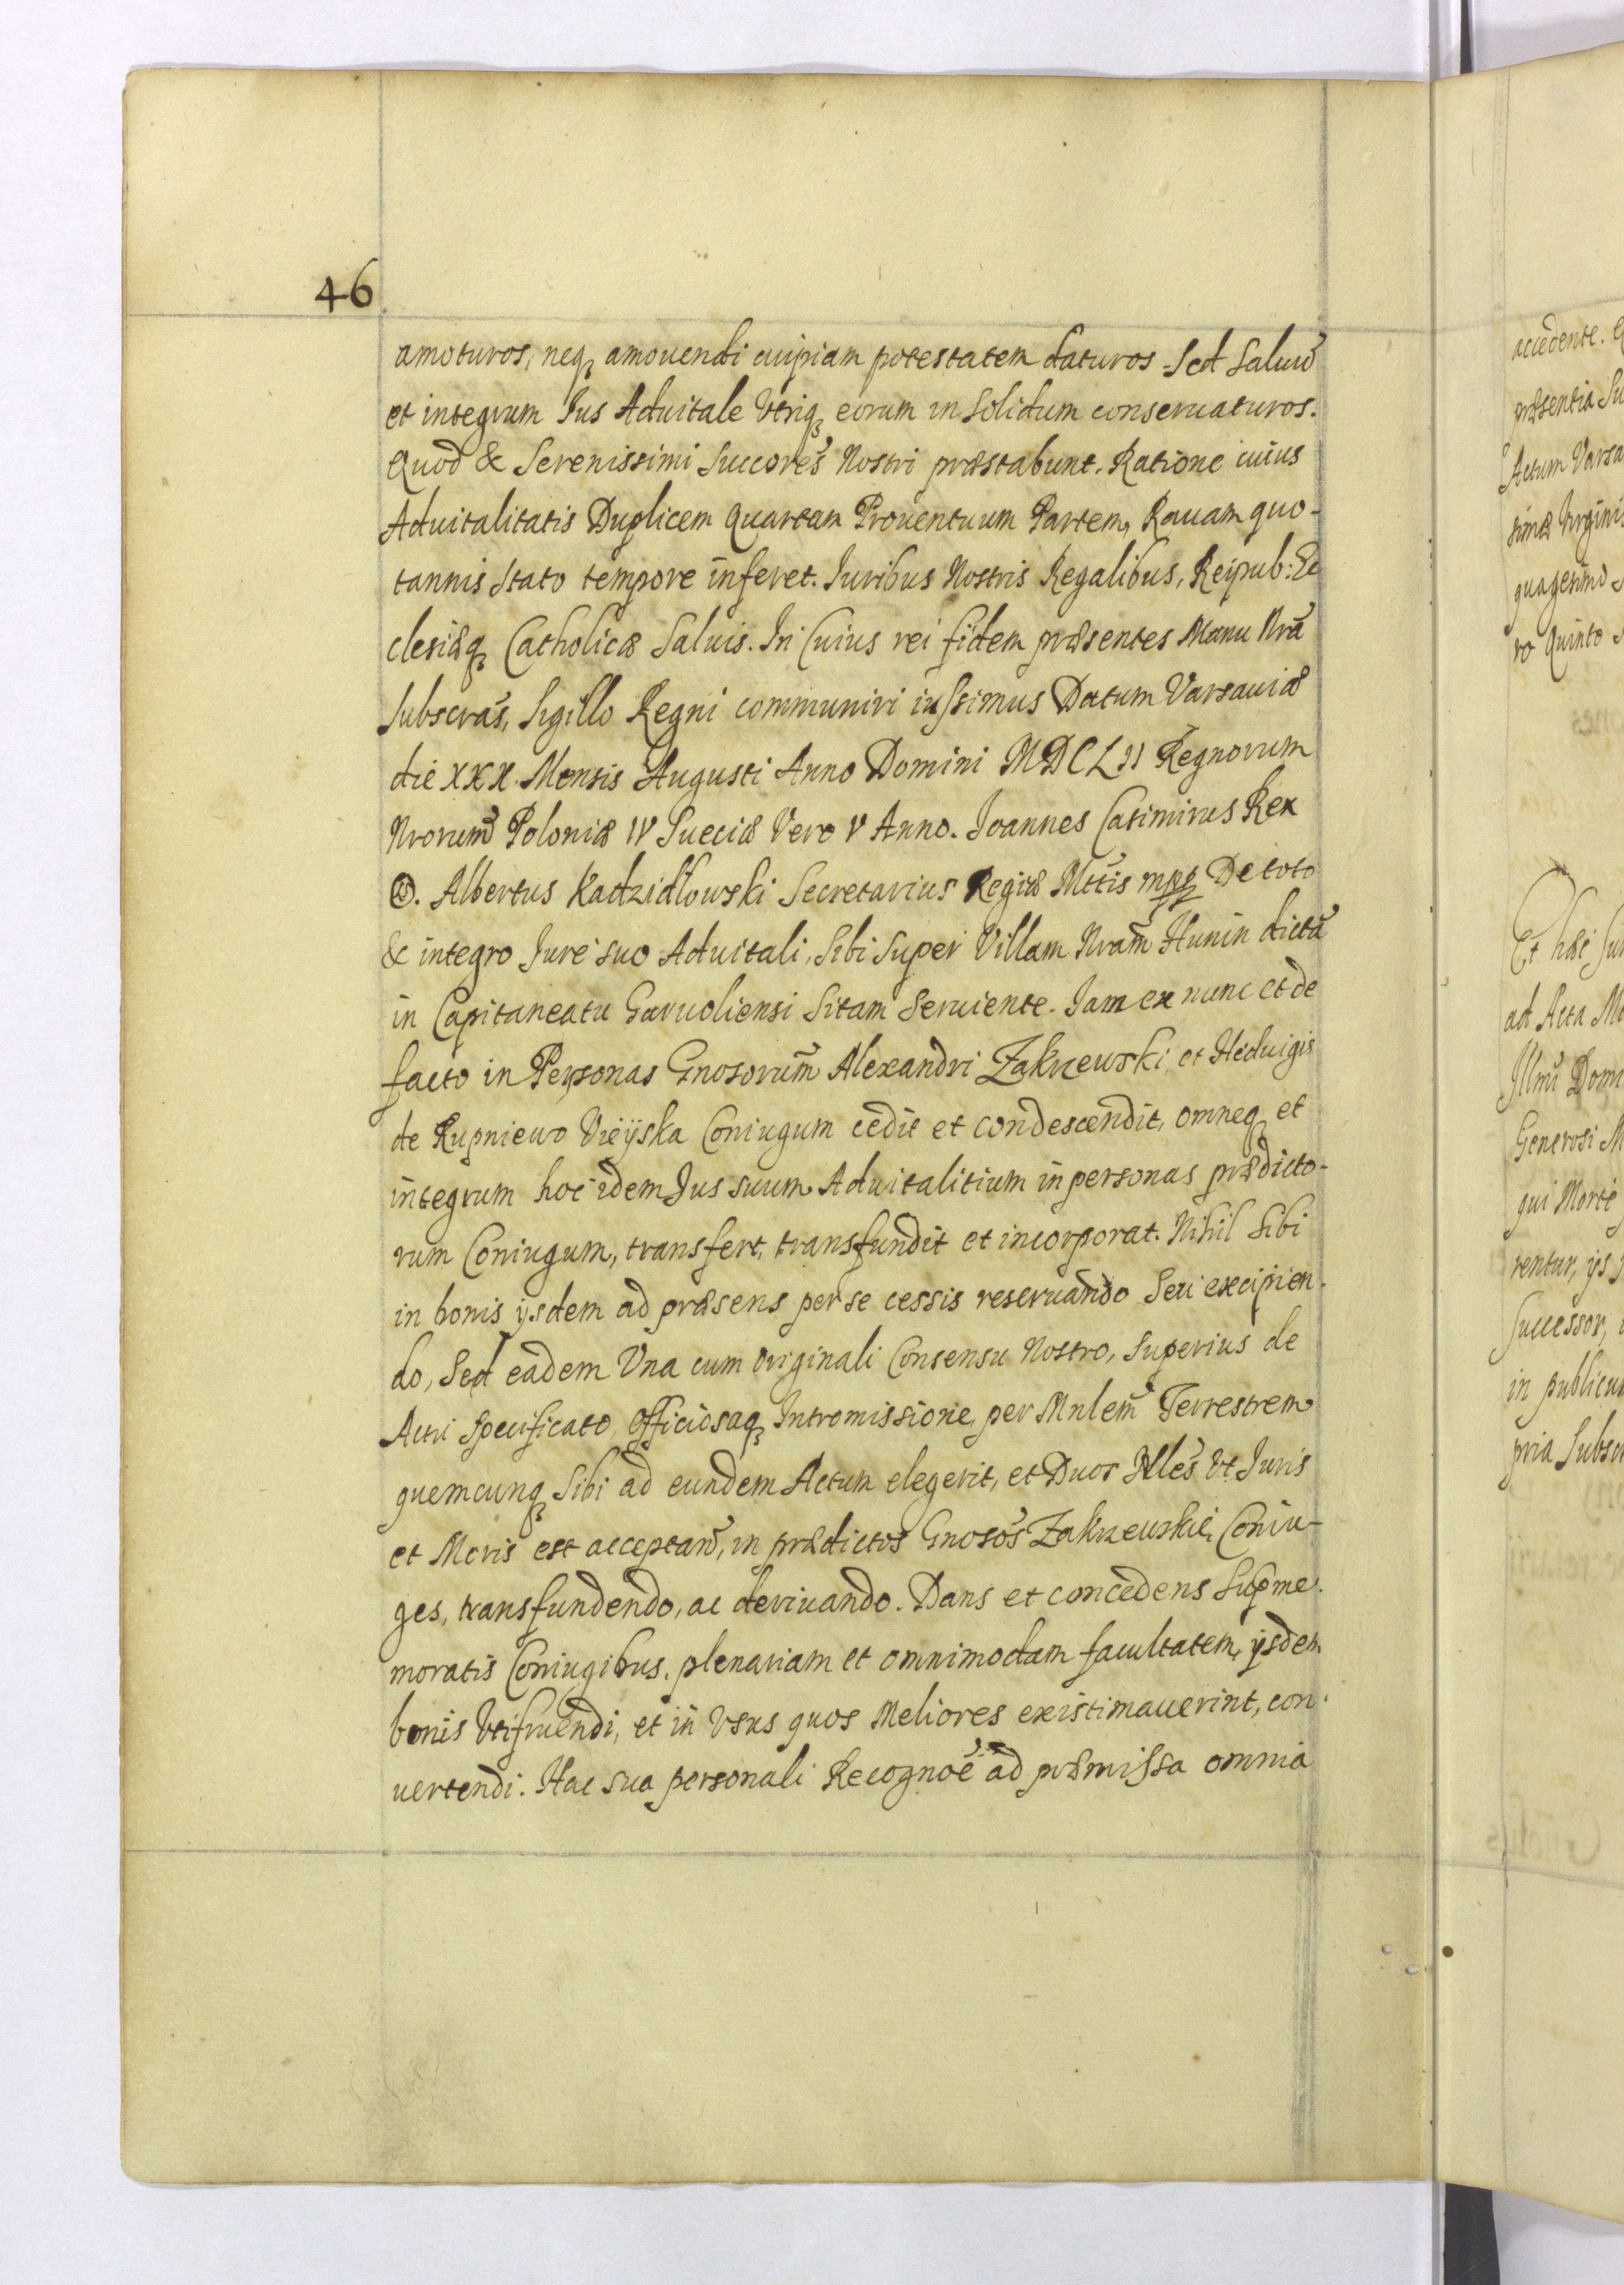 46
amoturos, neq₃ amouendi cuipiam potestatem daturos. Sed Saluū
et integrum Ius Aduitale Utriq₃ eorum in Solidum conseruaturos.
Quod & Serenissimi Succōres Nostri præstabunt. Ratione cuius
Aduitalitatis Duplicem Quartam Prouentuum Partem, Rauam quo-
tannis Stato tempore inferet. Iuribus Nostris Regalibus, Reipub: Ec
clesiæq₃ Catholicæ Saluis. In Cuius rei fidem præsentes Manu Nrā
Subscrās, Sigillo Regni communiri iussimus Datum Varsauiæ
die XXX. Mensis Augusti Anno Domini MDCLII Regnorum
Nrorum̄ Poloniæ IV Sueciæ Vero V Anno. Joannes Casimirus Rex
Albertus Kadzidłowski Secretarius Regiæ Mttis mpp De toto
& integro Jure suo Aduitali, Sibi Super Villam Nram̄ Hunin dictā
in Capitaneatu Garuoliensi Sitam Seruiente. Jam ex nunc et de
facto in Personas Gnosorum̄ Alexandri Zakrzewski et Heduigis
de Kupniewo Vieyska Coniugum cedit et condescendit, omneq₃ et
integrum hoc idem Jus suum Aduitalitium in personas prædicto-
rum Coniugum, transfert, transfundit et incorporat. Nihil Sibi
in bonis ysdem ad præsens per se cessis reseruando Seu excipien-
do, Sed eadem Una cum originali Consensu Nostro, Superius de
Actu Specificato, officiosaq₃ Intromissione, per Mnlem̄ Terrestrem
quemcunq₃ Sibi ad eundem Actum elegerit, et Duos Nlēs Ut Juris
et Moris est acceptarū, in prædictos Gnosōs Zakrzewskie Coniu-
ges, transfundendo, ac deriuando. Dans et concedens Supme-
moratis Coniugibus, plenariam et omnimodam facultatem, ysdem
bonis Utifruendi, et in Usus quos Meliores existimauerint, con-
uertendi. Hac sua personali Recognoē ad præmissa omnia
accedente.
præsentia Su
Actum Varsa
simæ Virginis
quagesimo
ro Quinto
Et hæc
ad Acta
Illmi Domi
Generosi M
qui Morte
rentur, ys
Successor,
in publicum
pria Subscr